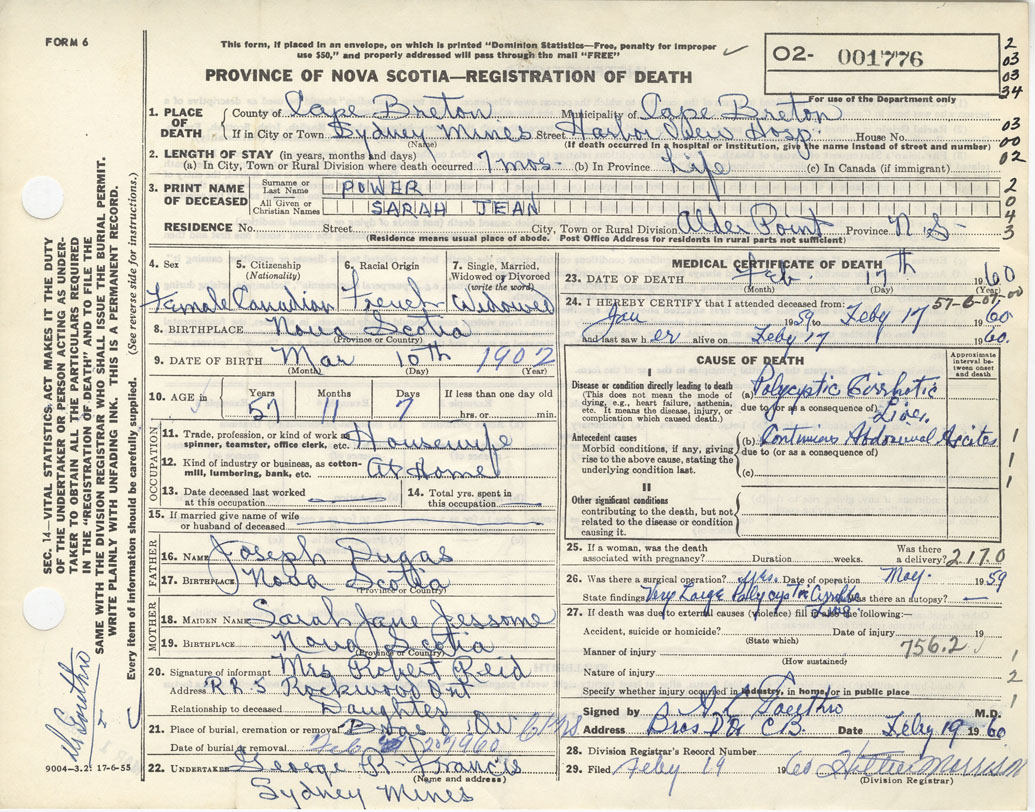 FORM 6
This form, if placed in an envelope, on which is printed "Dominion Statistics—Free, penalty for improper
use $50," and properly addressed will pass through the mail "FREE"
02- 001776
For use of the Department only
PROVINCE OF NOVA SCOTIA—REGISTRATION OF DEATH
2
03
03
34
03
00
02
2
0
4
3
1. PLACE OF DEATH County of Cape Breton Municipality of Cape Breton
If in City or Town Sydney Mines Street Harbor View Hosp. House No.
(Name) (If death occurred in a hospital or institution, give the name instead of street and number)
2. LENGTH OF STAY (in years, months and days)
(a) In City, Town or Rural Division where death occurred 7 mos- (b) In Province Life (c) In Canada (if immigrant)
3. PRINT NAME OF DECEASED Surname or Last Name POWER
All Given or Christian Names SARAH JEAN
RESIDENCE No. Street City, Town or Rural Division Alder Point Province N S-
(Residence means usual place of abode. Post Office Address for residents in rural parts not sufficient)
4. Sex 5. Citizenship (Nationality) 6. Racial Origin 7. Single, Married, Widowed or Divorced (write the word)
Female Canadian French Widowed
8. BIRTHPLACE Nova Scotia
(Province or Country)
9. DATE OF BIRTH Mar 10th 1902
(Month) (Day) (Year)
10. AGE in Years Months Days If less than one day old
57 11 7 hrs. or min.
OCCUPATION
11. Trade, profession, or kind of work as spinner, teamster, office clerk, etc. Housewife
12. Kind of industry or business, as cotton-mill, lumbering, bank, etc. At Home
13. Date deceased last worked at this occupation 14. Total yrs. spent in this occupation
15. If married give name of wife or husband of deceased
FATHER
16. NAME Joseph Dugas
17. BIRTHPLACE Nova Scotia
(Province or Country)
MOTHER
18. MAIDEN NAME Sarah Jane Jessome
19. BIRTHPLACE Nova Scotia
(Province or Country)
20. Signature of informant Mrs Robert Reid
Address R.R. 5 Rockwood Ont
Relationship to deceased Daughter
21. Place of burial, cremation or removal Bras d'Or
Date of burial or removal 1960
22. UNDERTAKER George R. Francis
(Name and address)
Sydney Mines
MEDICAL CERTIFICATE OF DEATH
23. DATE OF DEATH Feb 17th 1960
(Month) (Day) (Year)
57-6-07-00
24. I HEREBY CERTIFY that I attended deceased from:
Jan 1959 to Feby 17 1960
and last saw h er alive on Feby 17 1960.
CAUSE OF DEATH
Approximate interval between onset and death
I
Disease or condition directly leading to death
(This does not mean the mode of dying, e.g., heart failure, asthenia, etc. It means the disease, injury, or complication which caused death.)
(a) Polycystic Cirrhotic
due to (or as a consequence of) Liver.
Antecedent causes
Morbid conditions, if any, giving rise to the above cause, stating the underlying condition last.
(b) Continuius Abdominal Ascites
due to (or as a consequence of)
(c)
1
1
1
II
Other significant conditions
contributing to the death, but not related to the disease or condition causing it.
25. If a woman, was the death associated with pregnancy? Duration weeks. Was there a delivery? 217.0
26. Was there a surgical operation? yes. Date of operation May. 1959
State findings Very Large Polycystic Liver Was there an autopsy? —
27. If death was due to external causes (violence) fill in the following:—
Accident, suicide or homicide? Date of injury 19
(State which)
756.2
Manner of injury
(How sustained)
Nature of injury
Specify whether injury occurred in industry, in home, or in public place
1
2
1
Signed by M.D.
Address Bras D'Or C.B. Date Feby 19 1960
28. Division Registrar's Record Number
29. Filed Feby 19 1960 Hattie Morrison
(Division Registrar)
SEC. 14—VITAL STATISTICS ACT MAKES IT THE DUTY
OF THE UNDERTAKER OR PERSON ACTING AS UNDER-
TAKER TO OBTAIN ALL THE PARTICULARS REQUIRED
IN THE "REGISTRATION OF DEATH" AND TO FILE THE
SAME WITH THE DIVISION REGISTRAR WHO SHALL ISSUE THE BURIAL PERMIT.
WRITE PLAINLY WITH UNFADING INK. THIS IS A PERMANENT RECORD.
Every item of information should be carefully supplied. (See reverse side for instructions.)
9004-3.2: 17-6-55